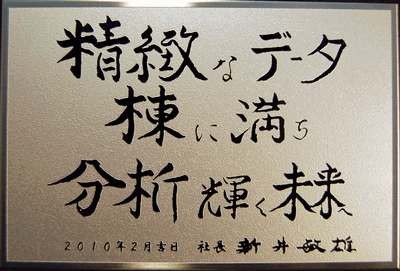 精緻なデータ
棟に満ち
分析輝く未来へ
2010年2月吉日 社長 新井敏雄